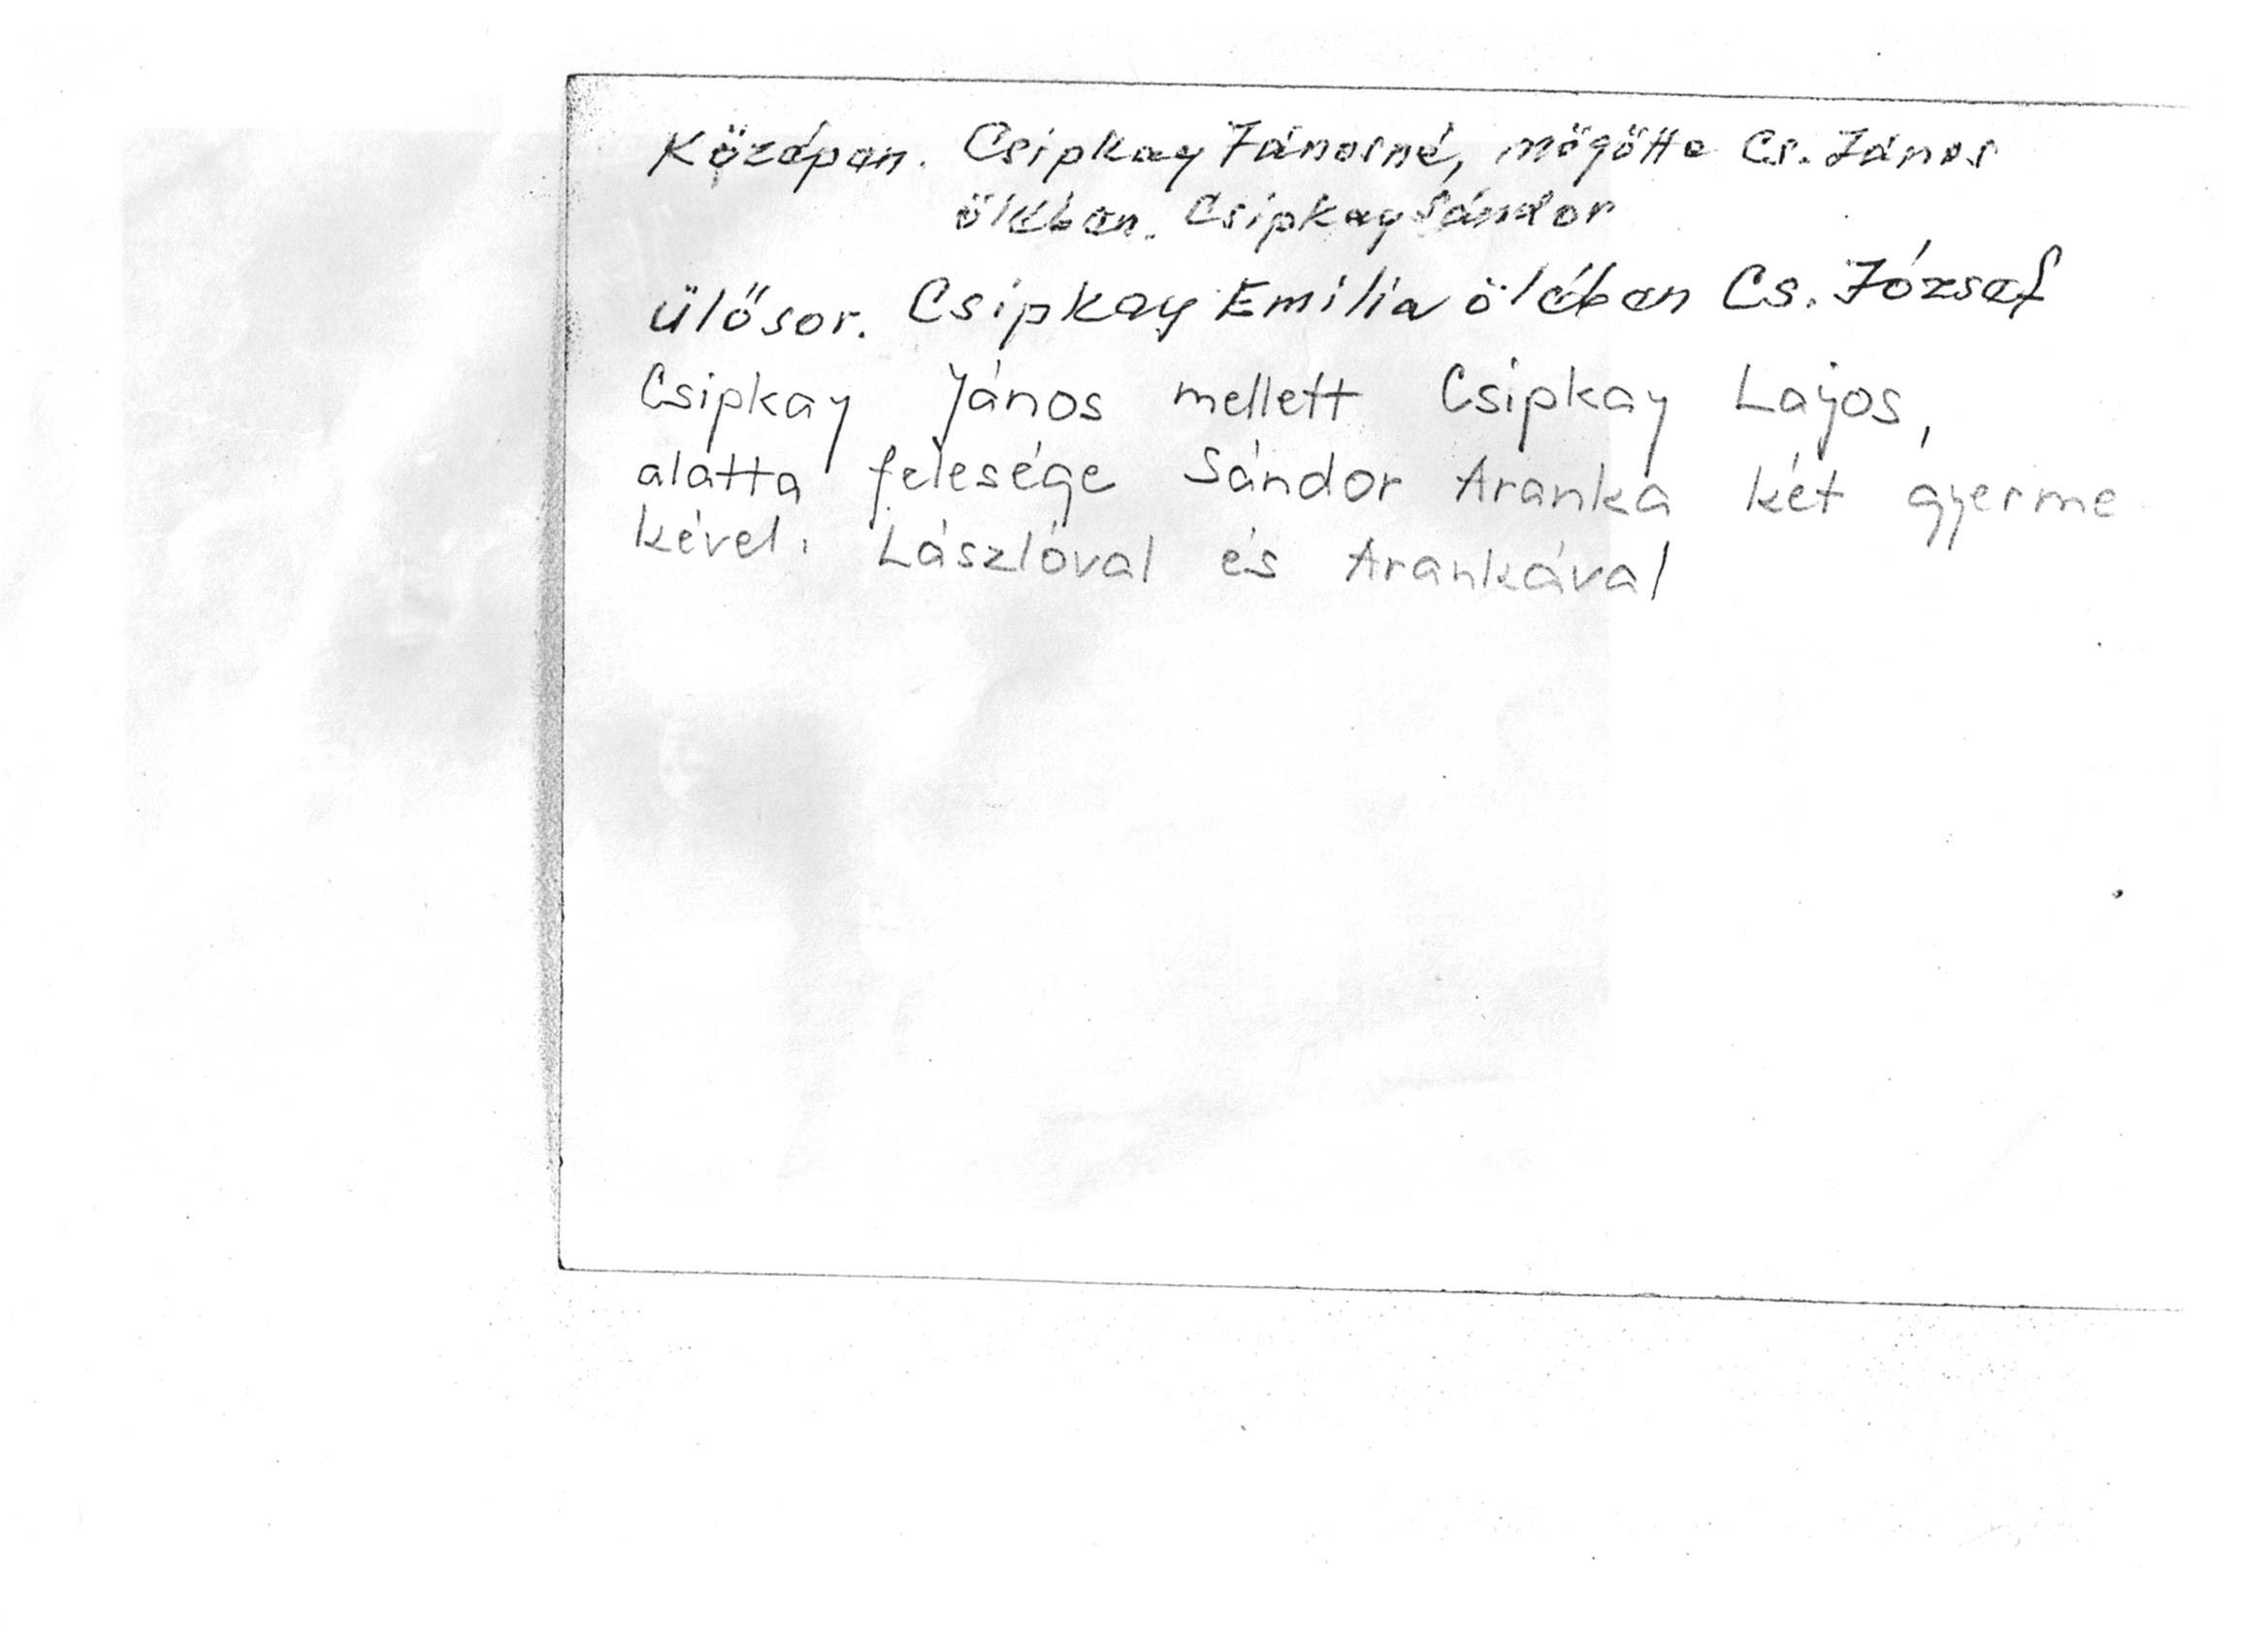 Középen. Csipkay Jánosné, mögötte Cs. János
ölében. Csipkay Sándor
Ülősor. Csipkay Emilia ölében Cs. József
Csipkay János mellett Csipkay Lajos,
alatta felesége Sándor Aranka két gyerme
kével. Lászlóval és Arankával